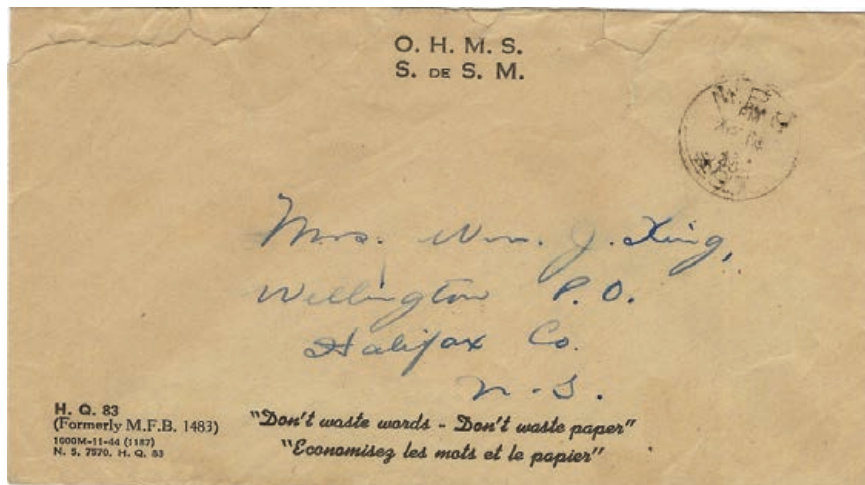 O. H. M. S.
S. DE S. M.
M.P.O.
PM
Mrs. Wm. J. King,
Wellington P.O.
Halifax Co.
N.S.
H. Q. 83
(Formerly M.F.B. 1483)
1000M-11-44 (1187)
N. S. 7570. H. Q. 83
"Don't waste words - Don't waste paper"
"Economisez les mots et le papier"